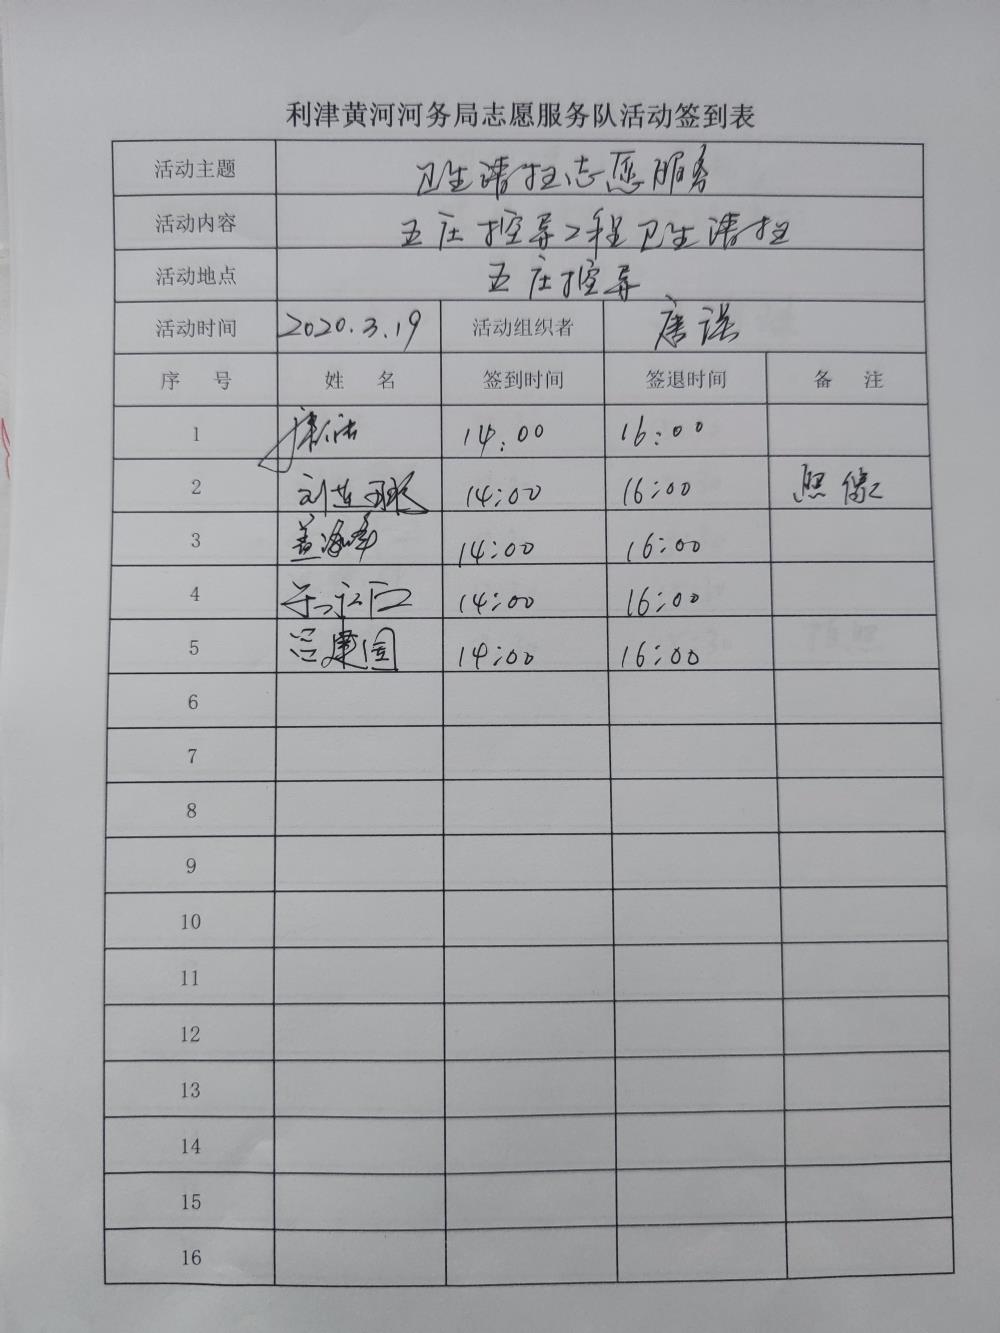 利津黄河河务局志愿服务队活动签到表
活动主题 卫生清扫志愿服务
活动内容 五庄控导工程卫生清扫
活动地点 五庄控导
活动时间 2020.3.19 活动组织者 唐
序 号 姓 名 签到时间 签退时间 备 注
1 14:00 16:00
2 刘莲 14:00 16:00 照像
3 盖海峰 14:00 16:00
4 14:00 16:00
5 吕建国 14:00 16:00
6
7
8
9
10
11
12
13
14
15
16